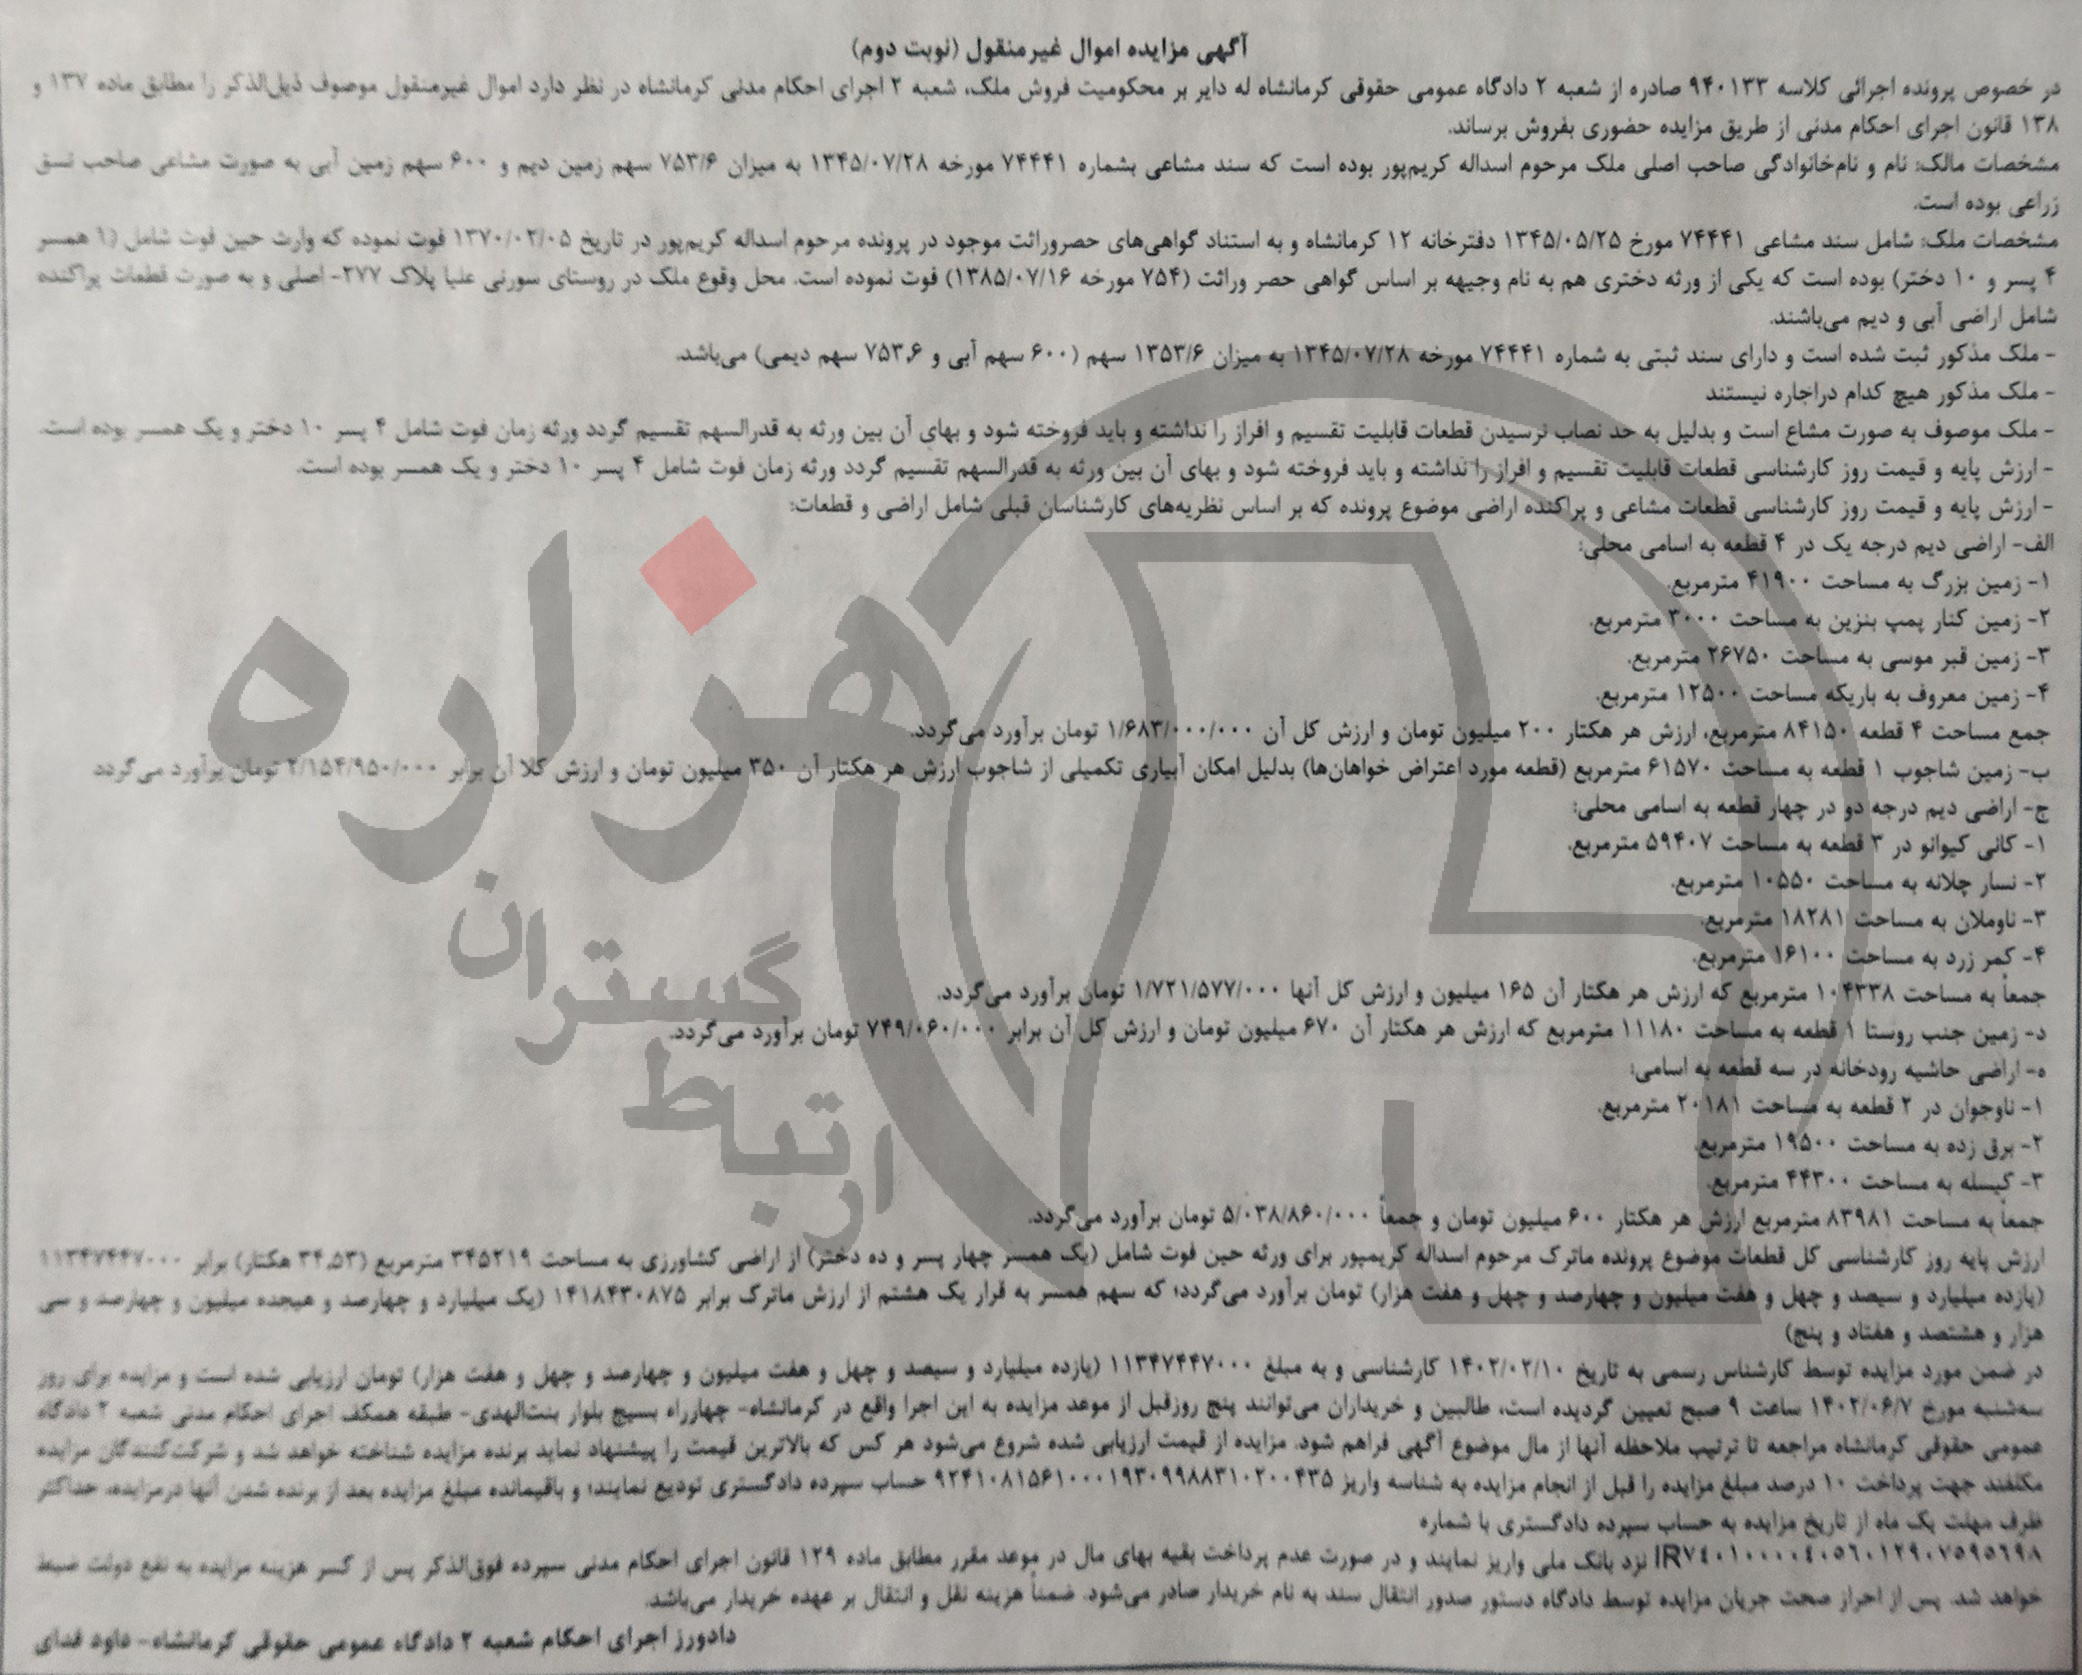 آگهی مزایده اموال غیرمنقول (نوبت دوم)
در خصوص پرونده اجرائی کلاسه ۹۴۰۱۳۳ صادره از شعبه ۲ دادگاه عمومی حقوقی کرمانشاه له دایر بر محکومیت فروش ملک، شعبه ۲ اجرای احکام مدنی کرمانشاه در نظر دارد اموال غیرمنقول موصوف ذیل‌الذکر را مطابق ماده ۱۳۷ و
۱۳۸ قانون اجرای احکام مدنی از طریق مزایده حضوری بفروش برساند.
مشخصات مالک: نام و نام‌خانوادگی صاحب اصلی ملک مرحوم اسداله کریم‌پور بوده است که سند مشاعی بشماره ۷۴۴۴۱ مورخه ۱۳۴۵/۰۷/۲۸ به میزان ۷۵۳/۶ سهم زمین دیم و ۶۰۰ سهم زمین آبی به صورت مشاعی صاحب نسق
زراعی بوده است.
مشخصات ملک: شامل سند مشاعی ۷۴۴۴۱ مورخ ۱۳۴۵/۰۵/۲۵ دفترخانه ۱۲ کرمانشاه و به استناد گواهی‌های حصروراثت موجود در پرونده مرحوم اسداله کریم‌پور در تاریخ ۱۳۷۰/۰۲/۰۵ فوت نموده که وارث حین فوت شامل (۱ همسر
۴ پسر و ۱۰ دختر) بوده است که یکی از ورثه دختری هم به نام وجیهه بر اساس گواهی حصر وراثت (۷۵۴ مورخه ۱۳۸۵/۰۷/۱۶) فوت نموده است. محل وقوع ملک در روستای سورنی علیا پلاک ۲۷۷- اصلی و به صورت قطعات پراکنده
شامل اراضی آبی و دیم می‌باشند.
- ملک مذکور ثبت شده است و دارای سند ثبتی به شماره ۷۴۴۴۱ مورخه ۱۳۴۵/۰۷/۲۸ به میزان ۱۳۵۳/۶ سهم (۶۰۰ سهم آبی و ۷۵۳٫۶ سهم دیمی) می‌باشد.
- ملک مذکور هیچ کدام دراجاره نیستند
- ملک موصوف به صورت مشاع است و بدلیل به حد نصاب نرسیدن قطعات قابلیت تقسیم و افراز را نداشته و باید فروخته شود و بهای آن بین ورثه به قدرالسهم تقسیم گردد ورثه زمان فوت شامل ۴ پسر ۱۰ دختر و یک همسر بوده است.
- ارزش پایه و قیمت روز کارشناسی قطعات قابلیت تقسیم و افراز را نداشته و باید فروخته شود و بهای آن بین ورثه به قدرالسهم تقسیم گردد ورثه زمان فوت شامل ۴ پسر ۱۰ دختر و یک همسر بوده است.
- ارزش پایه و قیمت روز کارشناسی قطعات مشاعی و پراکنده اراضی موضوع پرونده که بر اساس نظریه‌های کارشناسان قبلی شامل اراضی و قطعات:
الف- اراضی دیم درجه یک در ۴ قطعه به اسامی محلی:
۱- زمین بزرگ به مساحت ۴۱۹۰۰ مترمربع.
۲- زمین کنار پمپ بنزین به مساحت ۳۰۰۰ مترمربع.
۳- زمین قبر موسی به مساحت ۲۶۷۵۰ مترمربع.
۴- زمین معروف به باریکه مساحت ۱۲۵۰۰ مترمربع.
جمع مساحت ۴ قطعه ۸۴۱۵۰ مترمربع، ارزش هر هکتار ۲۰۰ میلیون تومان و ارزش کل آن ۱/۶۸۳/۰۰۰/۰۰۰ تومان برآورد می‌گردد.
ب- زمین شاجوب ۱ قطعه به مساحت ۶۱۵۷۰ مترمربع (قطعه مورد اعتراض خواهان‌ها) بدلیل امکان آبیاری تکمیلی از شاجوب ارزش هر هکتار آن ۳۵۰ میلیون تومان و ارزش کلا آن برابر ۲/۱۵۴/۹۵۰/۰۰۰ تومان برآورد می‌گردد
ج- اراضی دیم درجه دو در چهار قطعه به اسامی محلی:
۱- کانی کیوانو در ۳ قطعه به مساحت ۵۹۴۰۷ مترمربع.
۲- نسار چلانه به مساحت ۱۰۵۵۰ مترمربع.
۳- ناوملان به مساحت ۱۸۲۸۱ مترمربع.
۴- کمر زرد به مساحت ۱۶۱۰۰ مترمربع.
جمعاً به مساحت ۱۰۴۳۳۸ مترمربع که ارزش هر هکتار آن ۱۶۵ میلیون و ارزش کل آنها ۱/۷۲۱/۵۷۷/۰۰۰ تومان برآورد می‌گردد.
د- زمین جنب روستا ۱ قطعه به مساحت ۱۱۱۸۰ مترمربع که ارزش هر هکتار آن ۶۷۰ میلیون تومان و ارزش کل آن برابر ۷۴۹/۰۶۰/۰۰۰ تومان برآورد می‌گردد.
ه- اراضی حاشیه رودخانه در سه قطعه به اسامی:
۱- ناوجوان در ۲ قطعه به مساحت ۲۰۱۸۱ مترمربع.
۲- برق زده به مساحت ۱۹۵۰۰ مترمربع.
۳- کیسله به مساحت ۴۴۳۰۰ مترمربع.
جمعاً به مساحت ۸۳۹۸۱ مترمربع ارزش هر هکتار ۶۰۰ میلیون تومان و جمعاً ۵/۰۳۸/۸۶۰/۰۰۰ تومان برآورد می‌گردد.
ارزش پایه روز کارشناسی کل قطعات موضوع پرونده ماترک مرحوم اسداله کریمپور برای ورثه حین فوت شامل (یک همسر چهار پسر و ده دختر) از اراضی کشاورزی به مساحت ۳۴۵۲۱۹ مترمربع (۳۴٫۵۳ هکتار) برابر ۱۱۳۴۷۴۴۷۰۰۰
(یازده میلیارد و سیصد و چهل و هفت میلیون و چهارصد و چهل و هفت هزار) تومان برآورد می‌گردد؛ که سهم همسر به قرار یک هشتم از ارزش ماترک برابر ۱۴۱۸۴۳۰۸۷۵ (یک میلیارد و چهارصد و هیجده میلیون و چهارصد و سی
هزار و هشتصد و هفتاد و پنج)
در ضمن مورد مزایده توسط کارشناس رسمی به تاریخ ۱۴۰۲/۰۲/۱۰ کارشناسی و به مبلغ ۱۱۳۴۷۴۴۷۰۰۰ (یازده میلیارد و سیصد و چهل و هفت میلیون و چهارصد و چهل و هفت هزار) تومان ارزیابی شده است و مزایده برای روز
سه‌شنبه مورخ ۱۴۰۲/۰۶/۷ ساعت ۹ صبح تعیین گردیده است، طالبین و خریداران می‌توانند پنج روزقبل از موعد مزایده به این اجرا واقع در کرمانشاه- چهارراه بسیج بلوار بنت‌الهدی- طبقه همکف اجرای احکام مدنی شعبه ۲ دادگاه
عمومی حقوقی کرمانشاه مراجعه تا ترتیب ملاحظه آنها از مال موضوع آگهی فراهم شود. مزایده از قیمت ارزیابی شده شروع می‌شود هر کس که بالاترین قیمت را پیشنهاد نماید برنده مزایده شناخته خواهد شد و شرکت‌کنندگان مزایده
مکلفند جهت پرداخت ۱۰ درصد مبلغ مزایده را قبل از انجام مزایده به شناسه واریز ۹۲۴۱۰۸۱۵۶۱۰۰۰۱۹۳۰۹۹۸۸۳۱۰۲۰۰۴۳۵ حساب سپرده دادگستری تودیع نمایند؛ و باقیمانده مبلغ مزایده بعد از برنده شدن آنها درمزایده، حداکثر
ظرف مهلت یک ماه از تاریخ مزایده به حساب سپرده دادگستری با شماره
IR۷٤۰۱۰۰۰۰٤۰۵٦۰۱۲۹۰۷۵۹۵٦۹۸ نزد بانک ملی واریز نمایند و در صورت عدم پرداخت بقیه بهای مال در موعد مقرر مطابق ماده ۱۲۹ قانون اجرای احکام مدنی سپرده فوق‌الذکر پس از کسر هزینه مزایده به نفع دولت ضبط
خواهد شد. پس از احراز صحت جریان مزایده توسط دادگاه دستور صدور انتقال سند به نام خریدار صادر می‌شود. ضمناً هزینه نقل و انتقال بر عهده خریدار می‌باشد.
دادورز اجرای احکام شعبه ۲ دادگاه عمومی حقوقی کرمانشاه- داود فدای
هزاره
ارتباط گستران